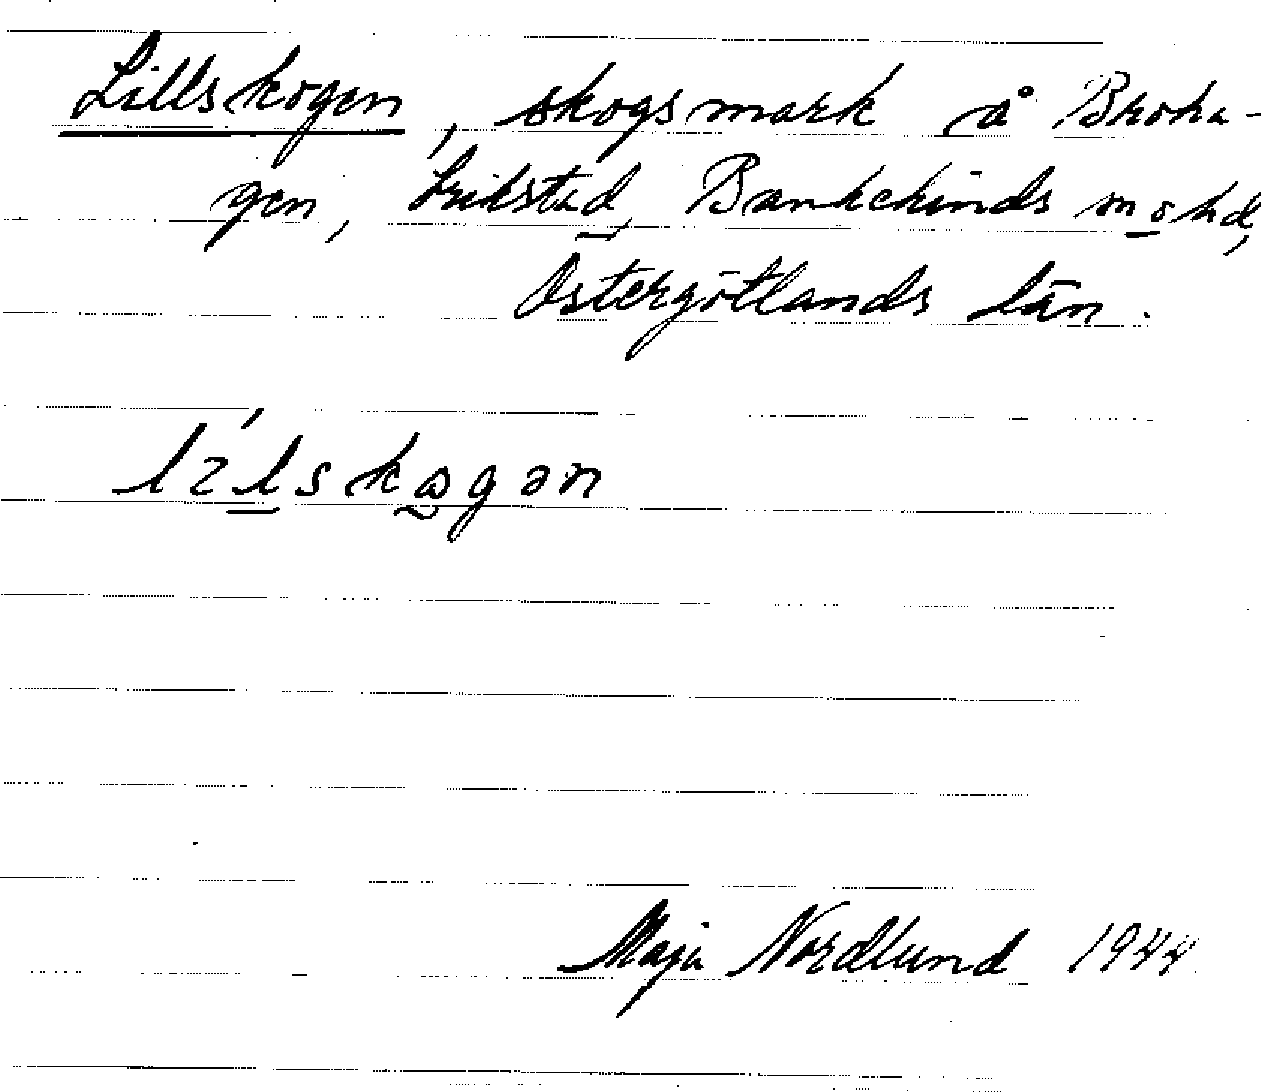 Lillskogen, skogsmark å Broha-
gen, Bankekinds sn o hd,
Östergötlands län.
Maja Nordlund 1944